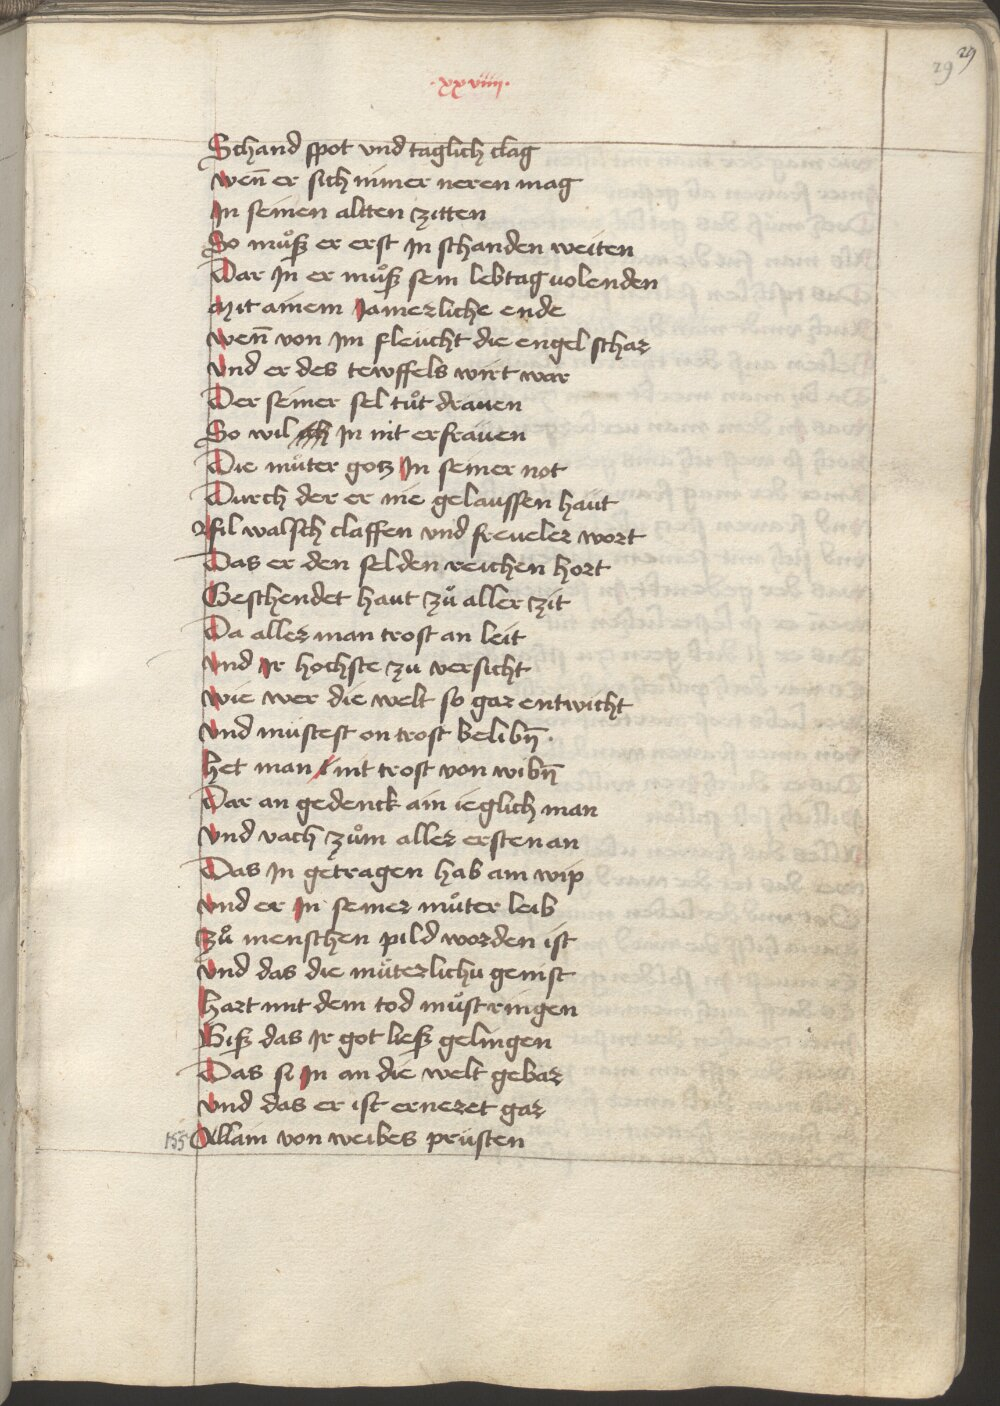 29 29
·xxviiij·
Schand spot vnd taglich clag
wen̄ er sich nimer neren mag
In seinen altten zitten
So muͦß er erst In schanden weiten
Dar In er muͦß sein lebtag uolenden
Mit ainem Iamerliche ende
wen̄ von Im fleücht die engel schar
Vnd er des tewffels wirt war
Der seiner sel tuͦt drauen
So wil In nit erfrauen
Die muͦter gotz In seiner not
Durch der er nie gelaussen haut
fil walsch claffen vnd freueler wort
Das er den selden reichen hort
Geschendet haut zuͦ aller zit
Da aller man trost an leit
Vnd Ir hochste zu versicht
wie wer die welt so gar entwicht
Vnd müstest on trost belibn̄ ·
het man nit trost von wibn̄
Dar an gedenck ain ieglich man
Vnd vach zuͦm aller ersten an
Das In getragen hab ain wip
Vnd er In seiner muͦter leib
Zuͦ menschen pild worden ist
Vnd das die muͤterlichu genist
hart mit dem tod muͦst ringen
Biß das Ir got ließ gelingen
Das si In an die welt gebar
Vnd das er ist erneret gar
155 Allain von weibes prüsten